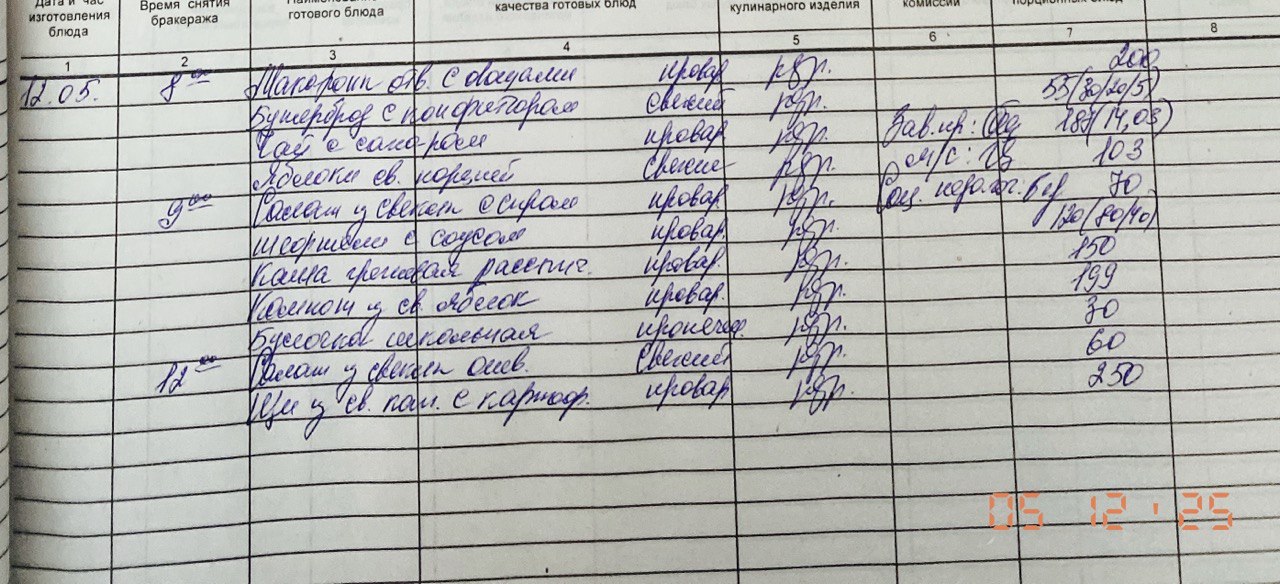 Дата и час изготовления блюда
Время снятия бракеража
готового блюда
качества готовых блюд
кулинарного изделия
комиссии
1 2 3 4 5 6 7 8
12.05. 8 00 Макароны отв. с овощами провар рдр. 200
Бутерброд с конфитюром свежий рдр. 55(30/20/5)
Чай с сахаром провар рдр. Зав.пр: 187/14,03)
Яблоки св. порцией Свежие рдр. м/с: 103
9 00 Салат из свеклы с сыром провар рдр. 70
с соусом провар рдр. 120(80/40)
Каша гречневая рассыпч. провар. рдр. 150
Компот из св. яблок провар. рдр. 199
Булочка школьная пропечен. рдр. 30
12 00 Салат из свежих овощ. Свежий рдр. 60
Щи из св. кап. с картоф. провар рдр. 250
05 12 ' 25